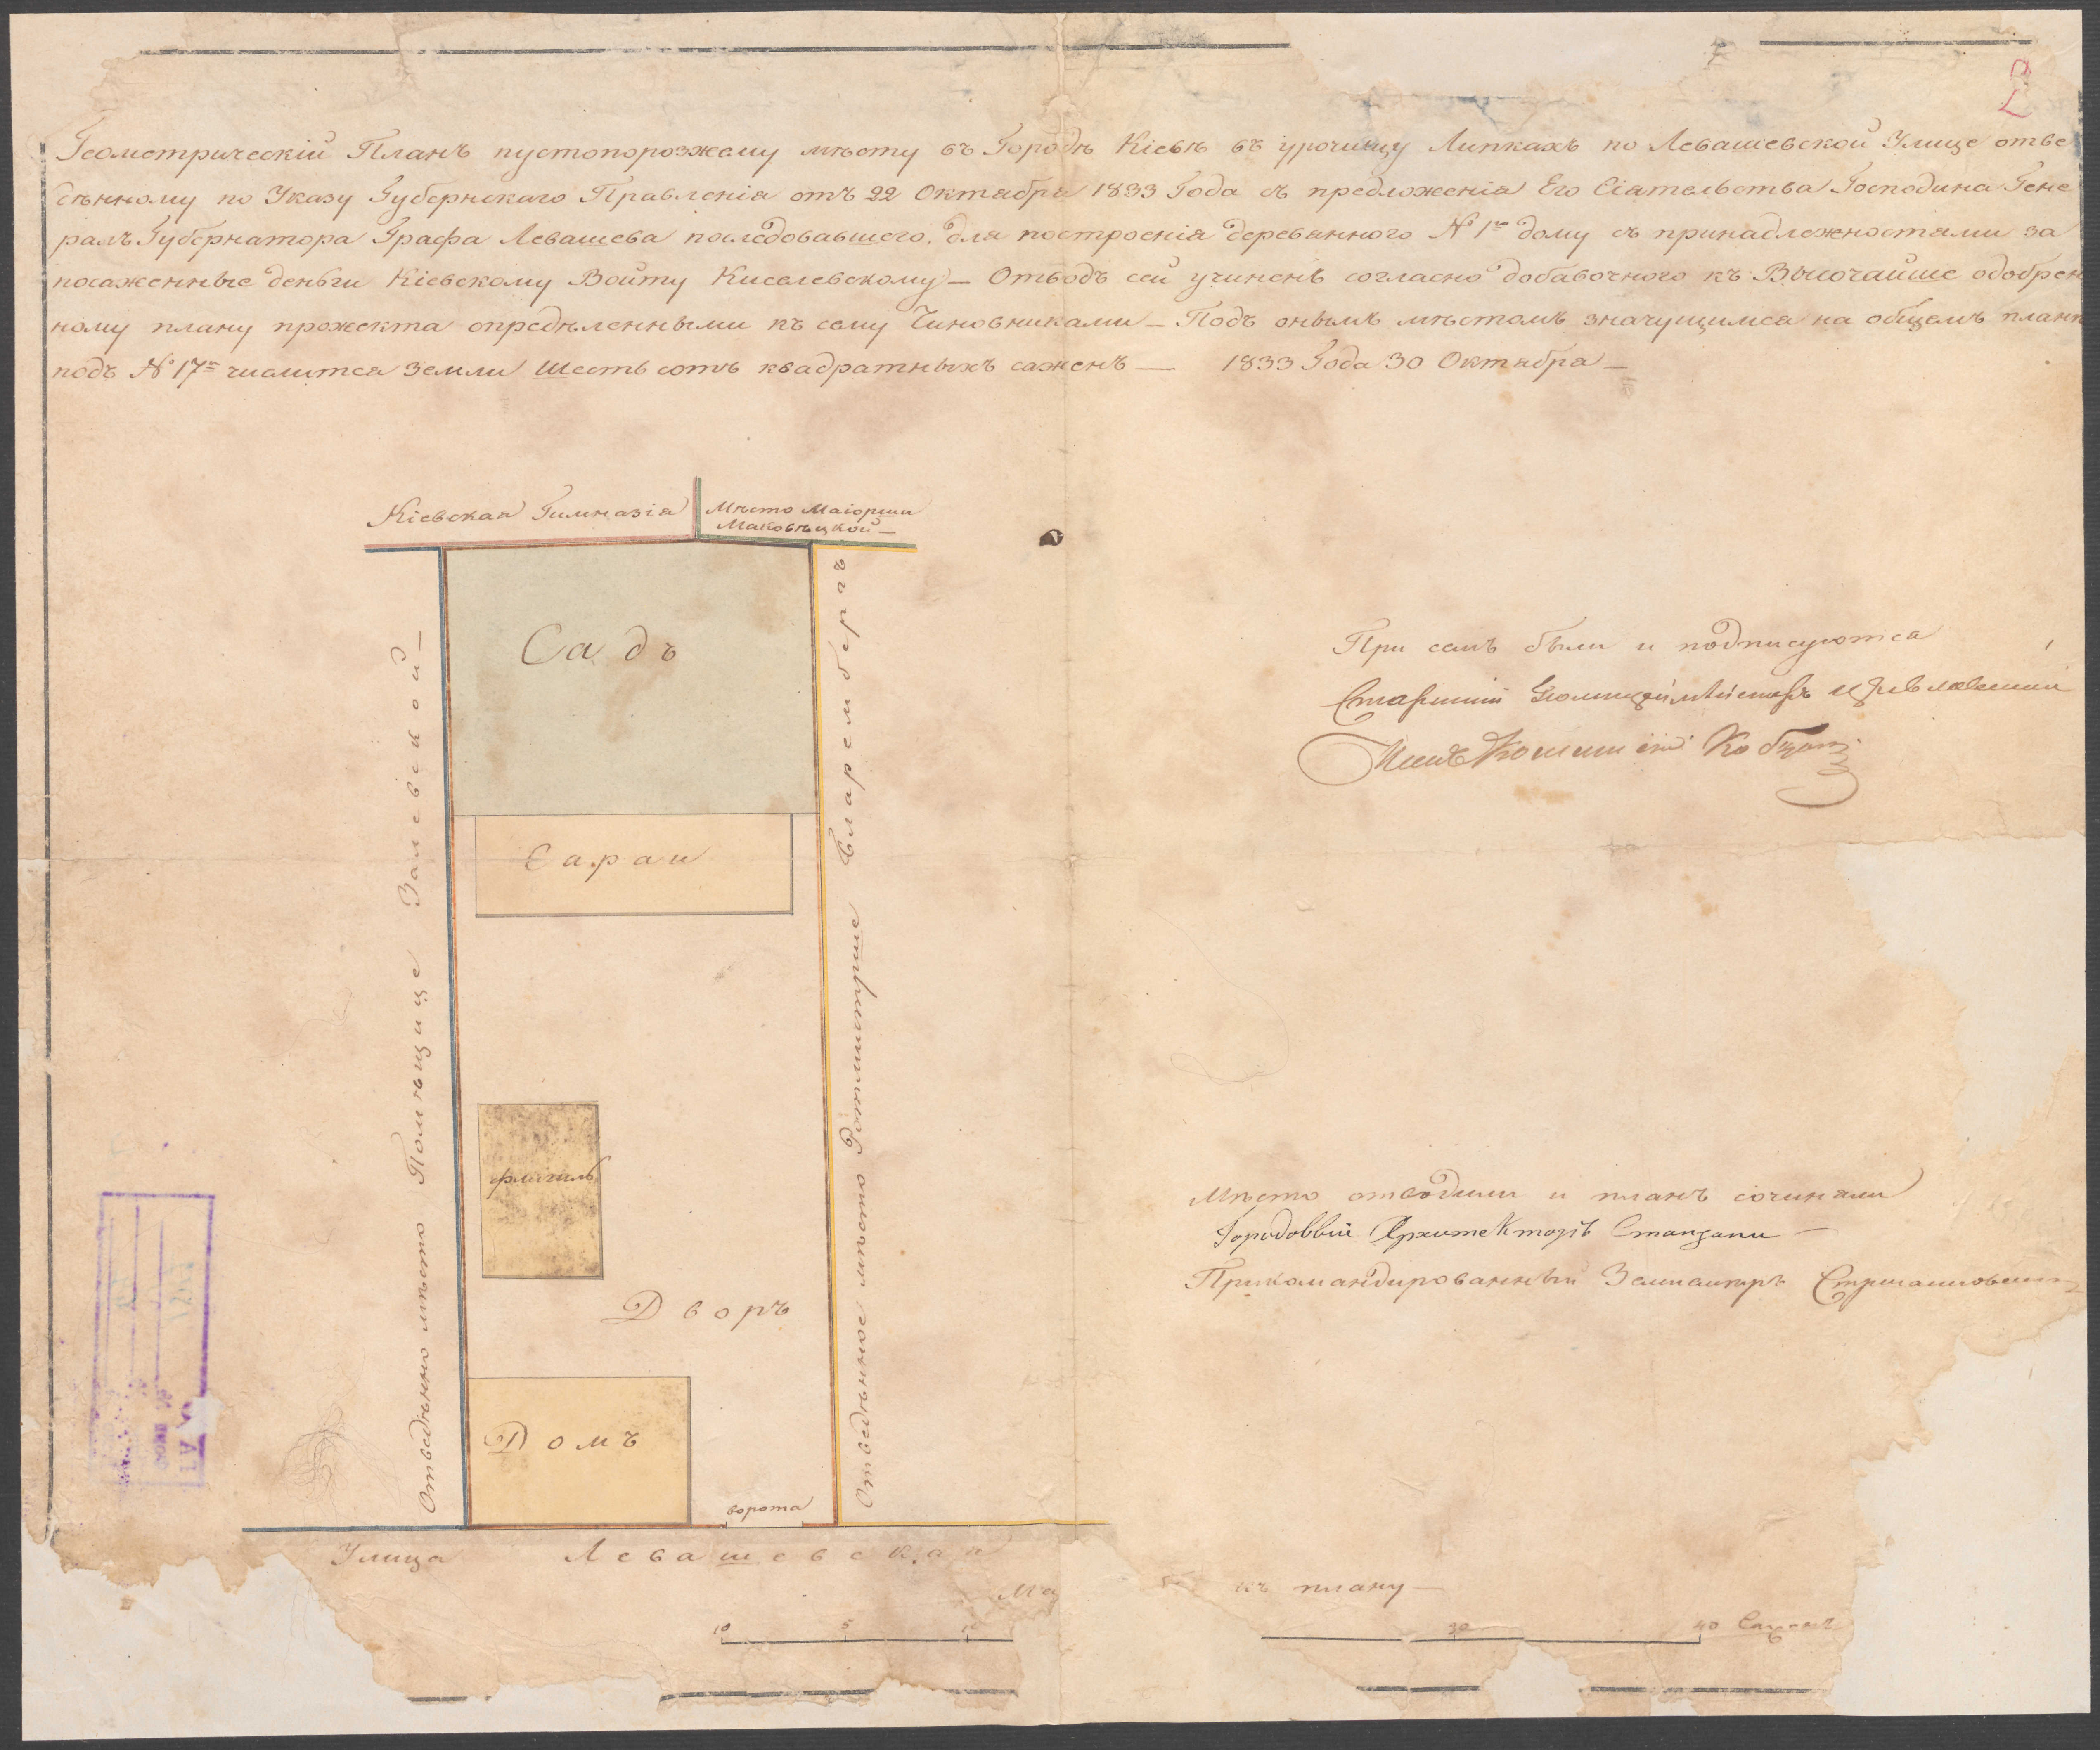 Геометрическій Планъ пустопорозжему мѣсту въ Городѣ Кіевѣ въ урочищу Липкахъ по Левашевской Улице отве
денному по Указу Губернскаго Правленія отъ 22 Октября 1833 Года съ предложенія Его Сіятельства Господина Гене
ралъ Губернатора Графа Левашева последовавшего, для построенія деревянного № 1го дому съ принадлежностями за
посаженные деньги Кіевскому Войту Киселевскому — Отводъ сей учиненъ согласно добавочного къ Высочайше одобрен
ному плану прожекта опредѣленными къ сему Чиновниками — Подъ онымъ мѣстомъ значущимся на общемъ планѣ
подъ № 17м числится Земли шесть сотъ квадратныхъ саженъ — 1833 Года 30 Октября —
Кіевская Гимназія
Мѣсто Маіорши
Маковѣцкой —
Садъ
Сараи
флигиль
Дворъ
Домъ
ворота
Отведѣнно мѣсто Помѣщице Залевской —
Отведѣнное мѣсто Ротмистрше Кларембергъ
Улица Левашевская
При семъ были и подписуются
Старшій Полицеймейстеръ
Мѣсто отводили и планъ сочиняли
Городовый Архитекторъ Станзани —
Прикомандированный Землемеръ
Ма
къ плану —
10 5 10 30 40 Саженъ